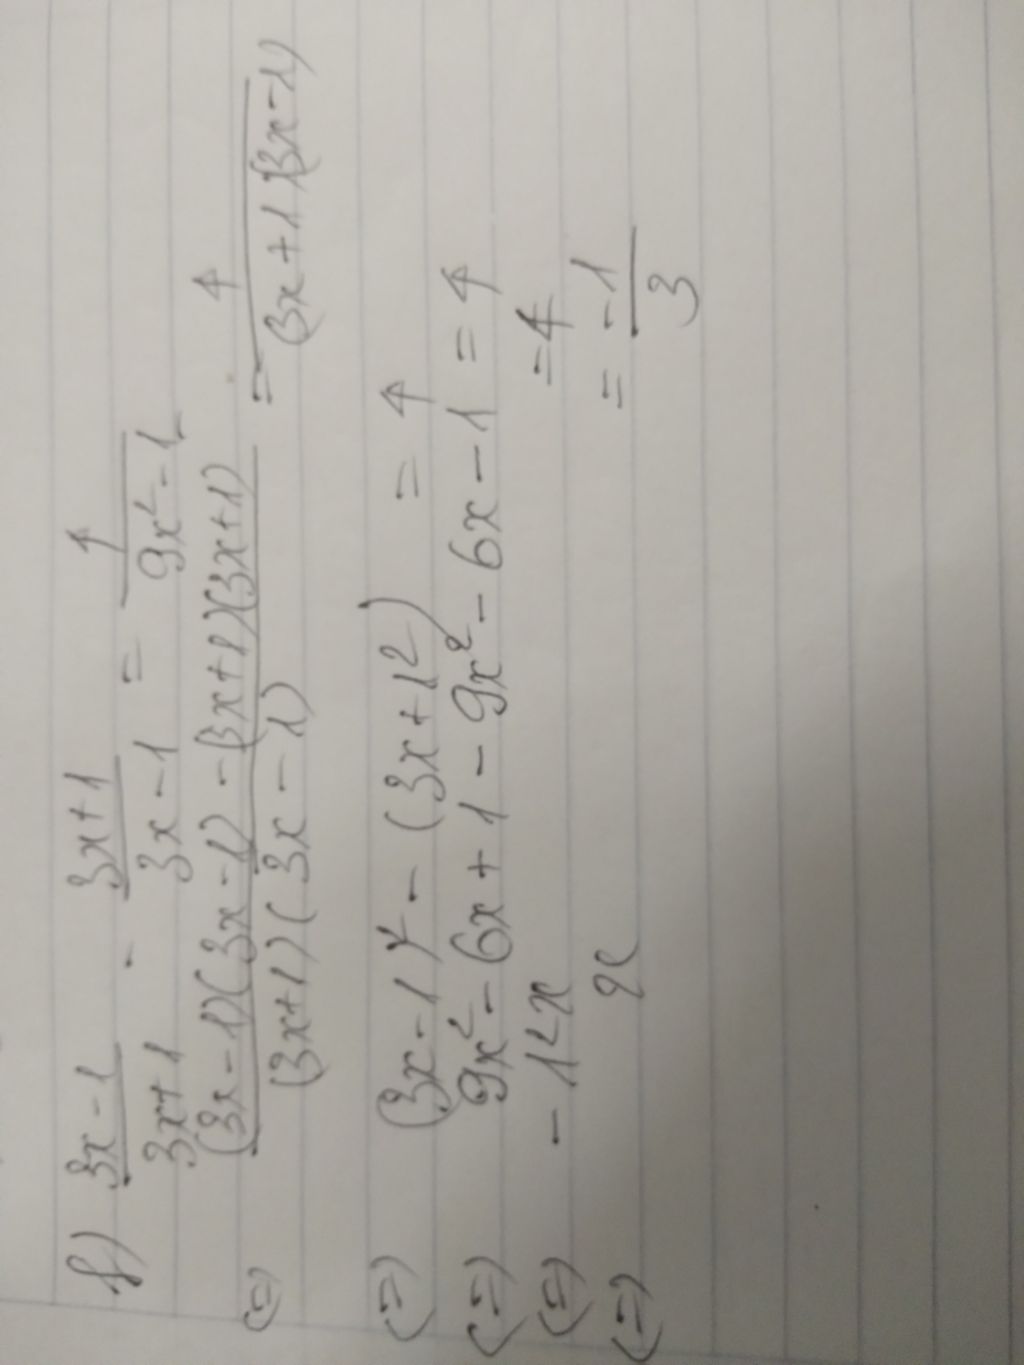 f) (3x-1)/(3x+1) - (3x+1)/(3x-1) = 4/(9x²-1)
(=) ((3x-1)(3x-1) - (3x+1)(3x+1))/((3x+1)(3x-1)) = 4/((3x+1)(3x-1))
(=) (3x-1)² - (3x+1²) = 4
(=) 9x² - 6x + 1 - 9x² - 6x - 1 = 4
(=) -12x = 4
(=) x = -1/3